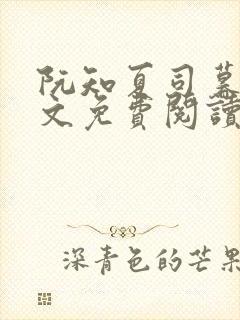 阮知夏司幕
文免費閱讀
深青色的芒果